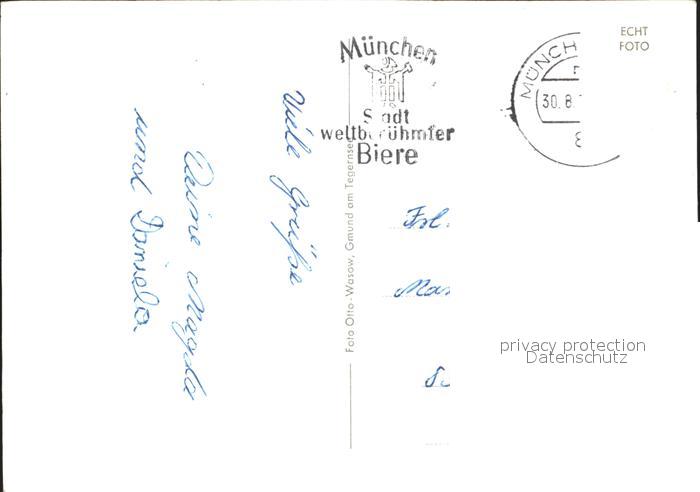 München
Stadt
weltberühmter
Biere
MÜNCH
30.8.
8
ECHT
FOTO
Viele Grüße
Deine Magda
und Daniela
Foto Otto-Wasow, Gmund am Tegernsee
Frl.
privacy protection
Datenschutz